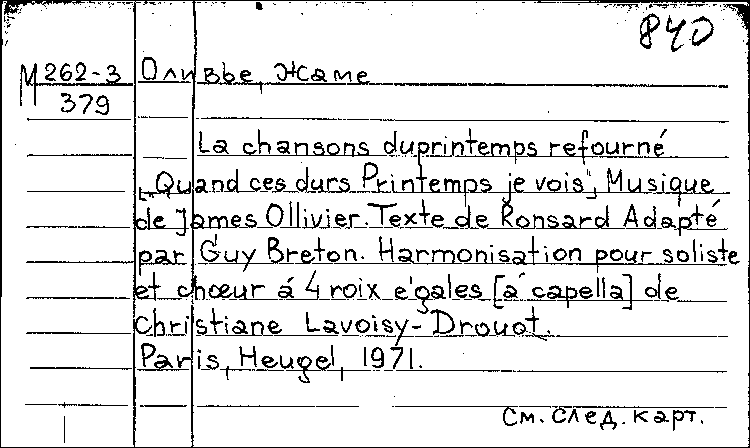 840
М 262-3 Оливье, Жаме
379
La chansons duprintemps refourné
„Quand ces durs Printemps je vois", Musique
de James Ollivier. Texte de Ronsard Adapté
par Guy Breton. Harmonisation pour soliste
et chœur á 4 roix e'gales [a' capella] de
Christiane Lavoisy-Drouot.
Paris, Heugel, 1971.
См. след. карт.